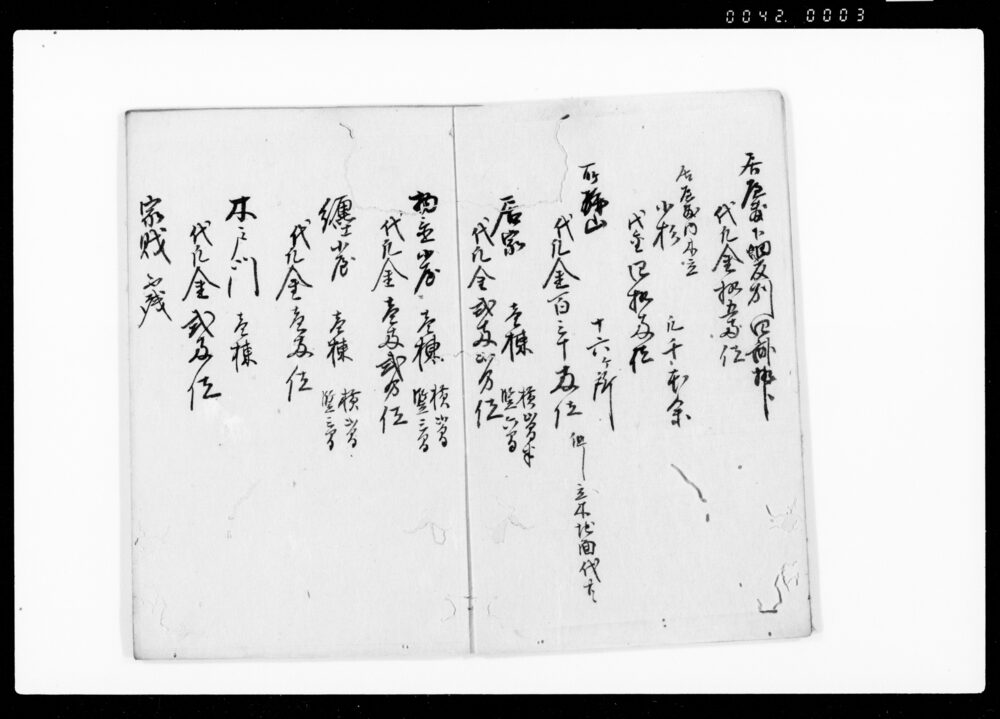 0042.0003
居屋敷下畑反別四畝拝
代凡金拾五両位
居屋敷内木立
小杉 凡千本余
代金四拾両位
百姓山 十六ヶ所
代凡金百三十両位 但し立木地面代共
居家 壱棟 横四間半 竪六間
代凡金弐両弐分位
物置小屋 壱棟 横弐間 竪三間
代凡金壱両弐分位
纏小屋 壱棟 横弐間 竪三間
代凡金壱両位
木戸門 壱棟
代凡金弐両位
家賎